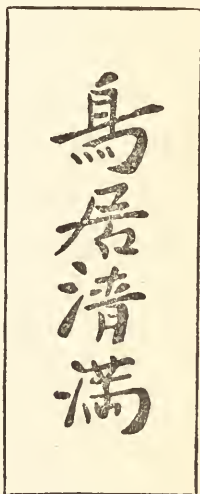 鳥居清満